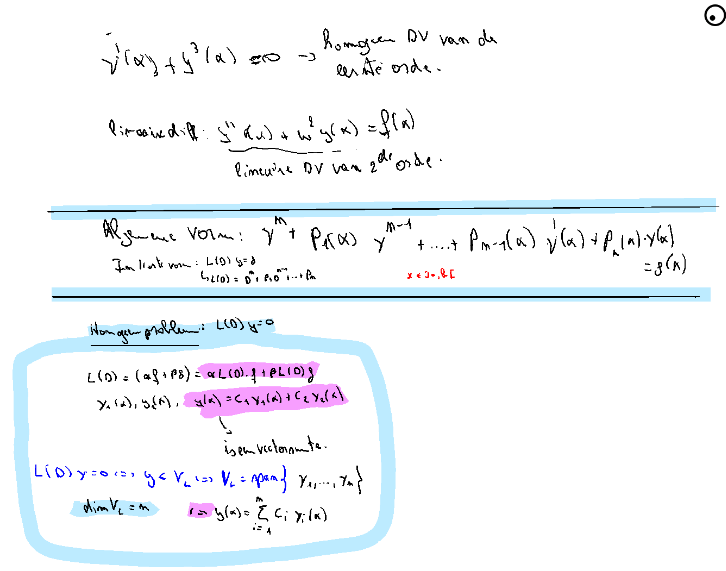 y'(x) + y³(x) = 0 → homogeen DV van de
eerste orde.
lineaire diff: y''(x) + ω² y(x) = f(x)
lineaire DV van 2de orde.
Algemene vorm: yⁿ + p₁(x) yⁿ⁻¹ + .... + pₙ₋₁(x) y'(x) + pₙ(x)·y(x)
= g(x)
vorm: L(D) y = g
↳ L(D) = Dⁿ + p₁Dⁿ⁻¹ + ... + pₙ
x ∈ ]a, b[
Homogeen probleem: L(D) y = 0
L(D) = (αf + βg) = αL(D)·f + βL(D)g
y₁(x), y₂(x), y(x) = C₁ y₁(x) + C₂ y₂(x)
is een vectorruimte.
L(D) y = 0 <=> y ∈ V_L <=> V_L = span{ y₁, ..., yₙ}
dim V_L = n
<=> y(x) = Σ_{i=1}^{n} Cᵢ yᵢ(x)